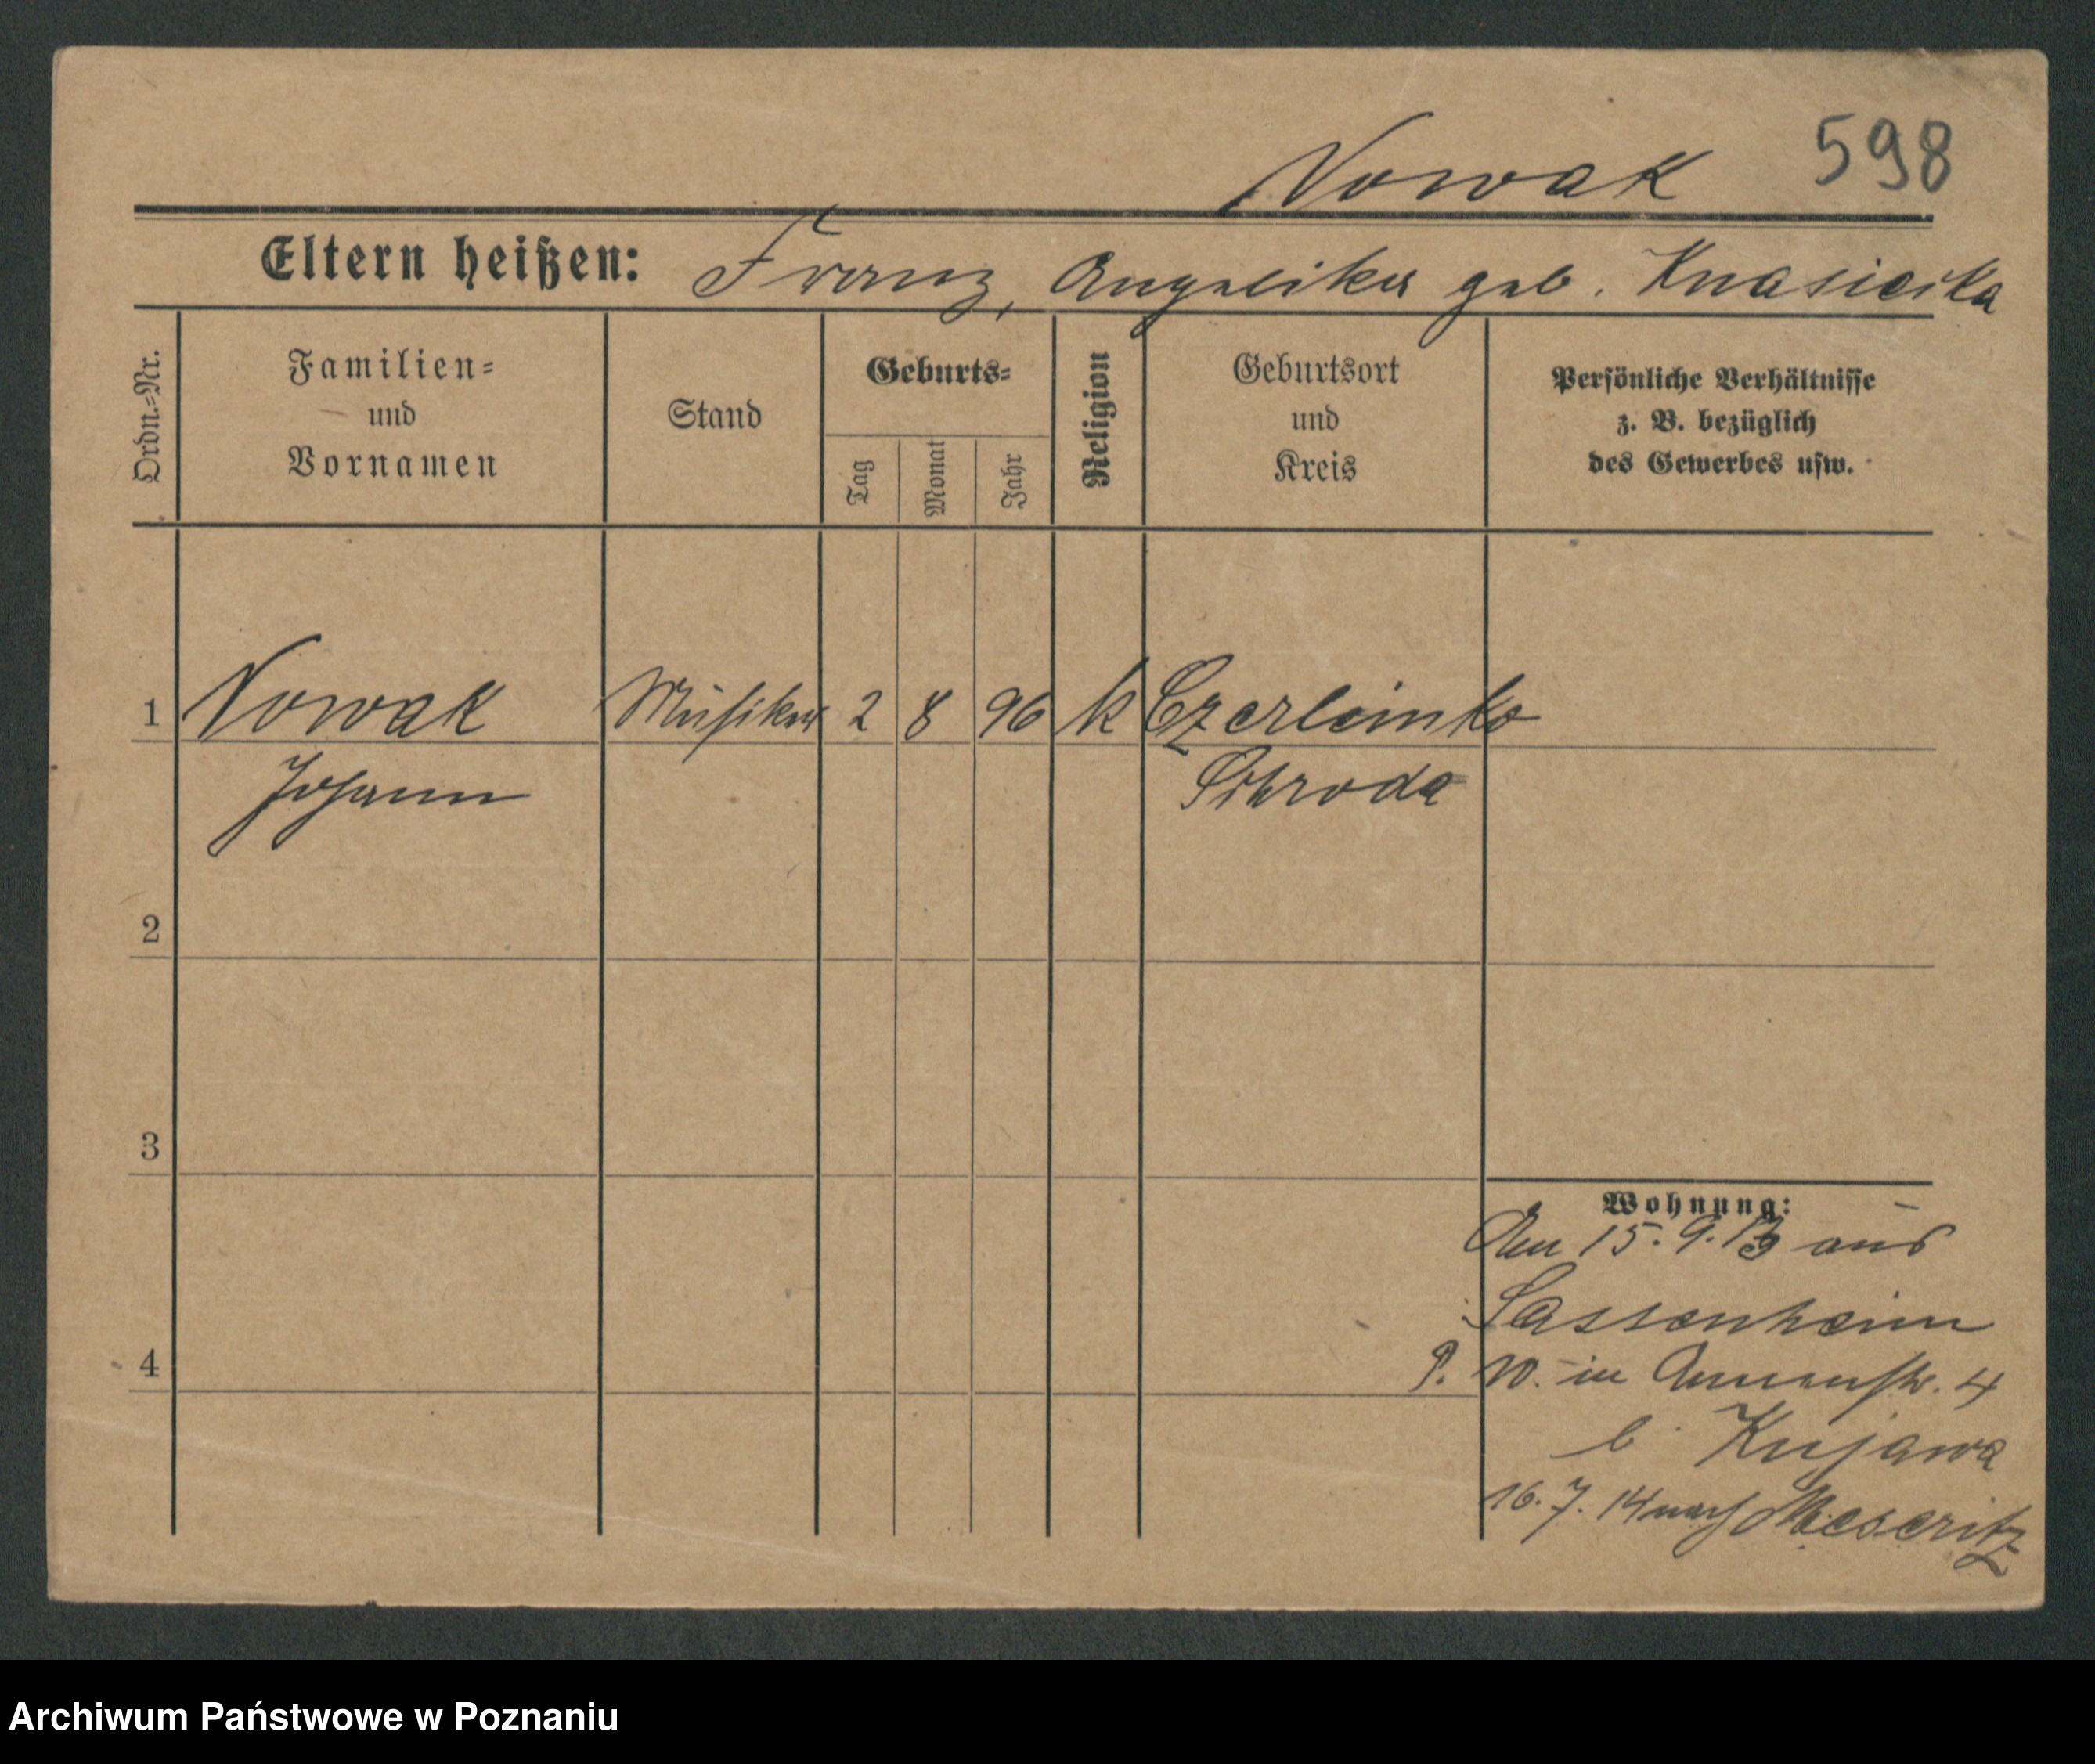 Nowak 598
Eltern heißen: Franz, Angelika geb. Knasiecka
Ordn.-Nr.
Familien-
und
Vornamen
Stand
Geburts-
Tag
Monat
Jahr
Religion
Geburtsort
und
Kreis
Persönliche Verhältnisse
z. B. bezüglich
des Gewerbes usw.
1 Nowak Musiker 2 8 96 k Czerleinko
Johann Schroda
2
3
Wohnung:
Am 15. 9. 13 aus
Sassenheim
4
P. W. in Annenstr. 4
b. Kujawa
16. 7. 14 nach Meseritz
Archiwum Państwowe w Poznaniu